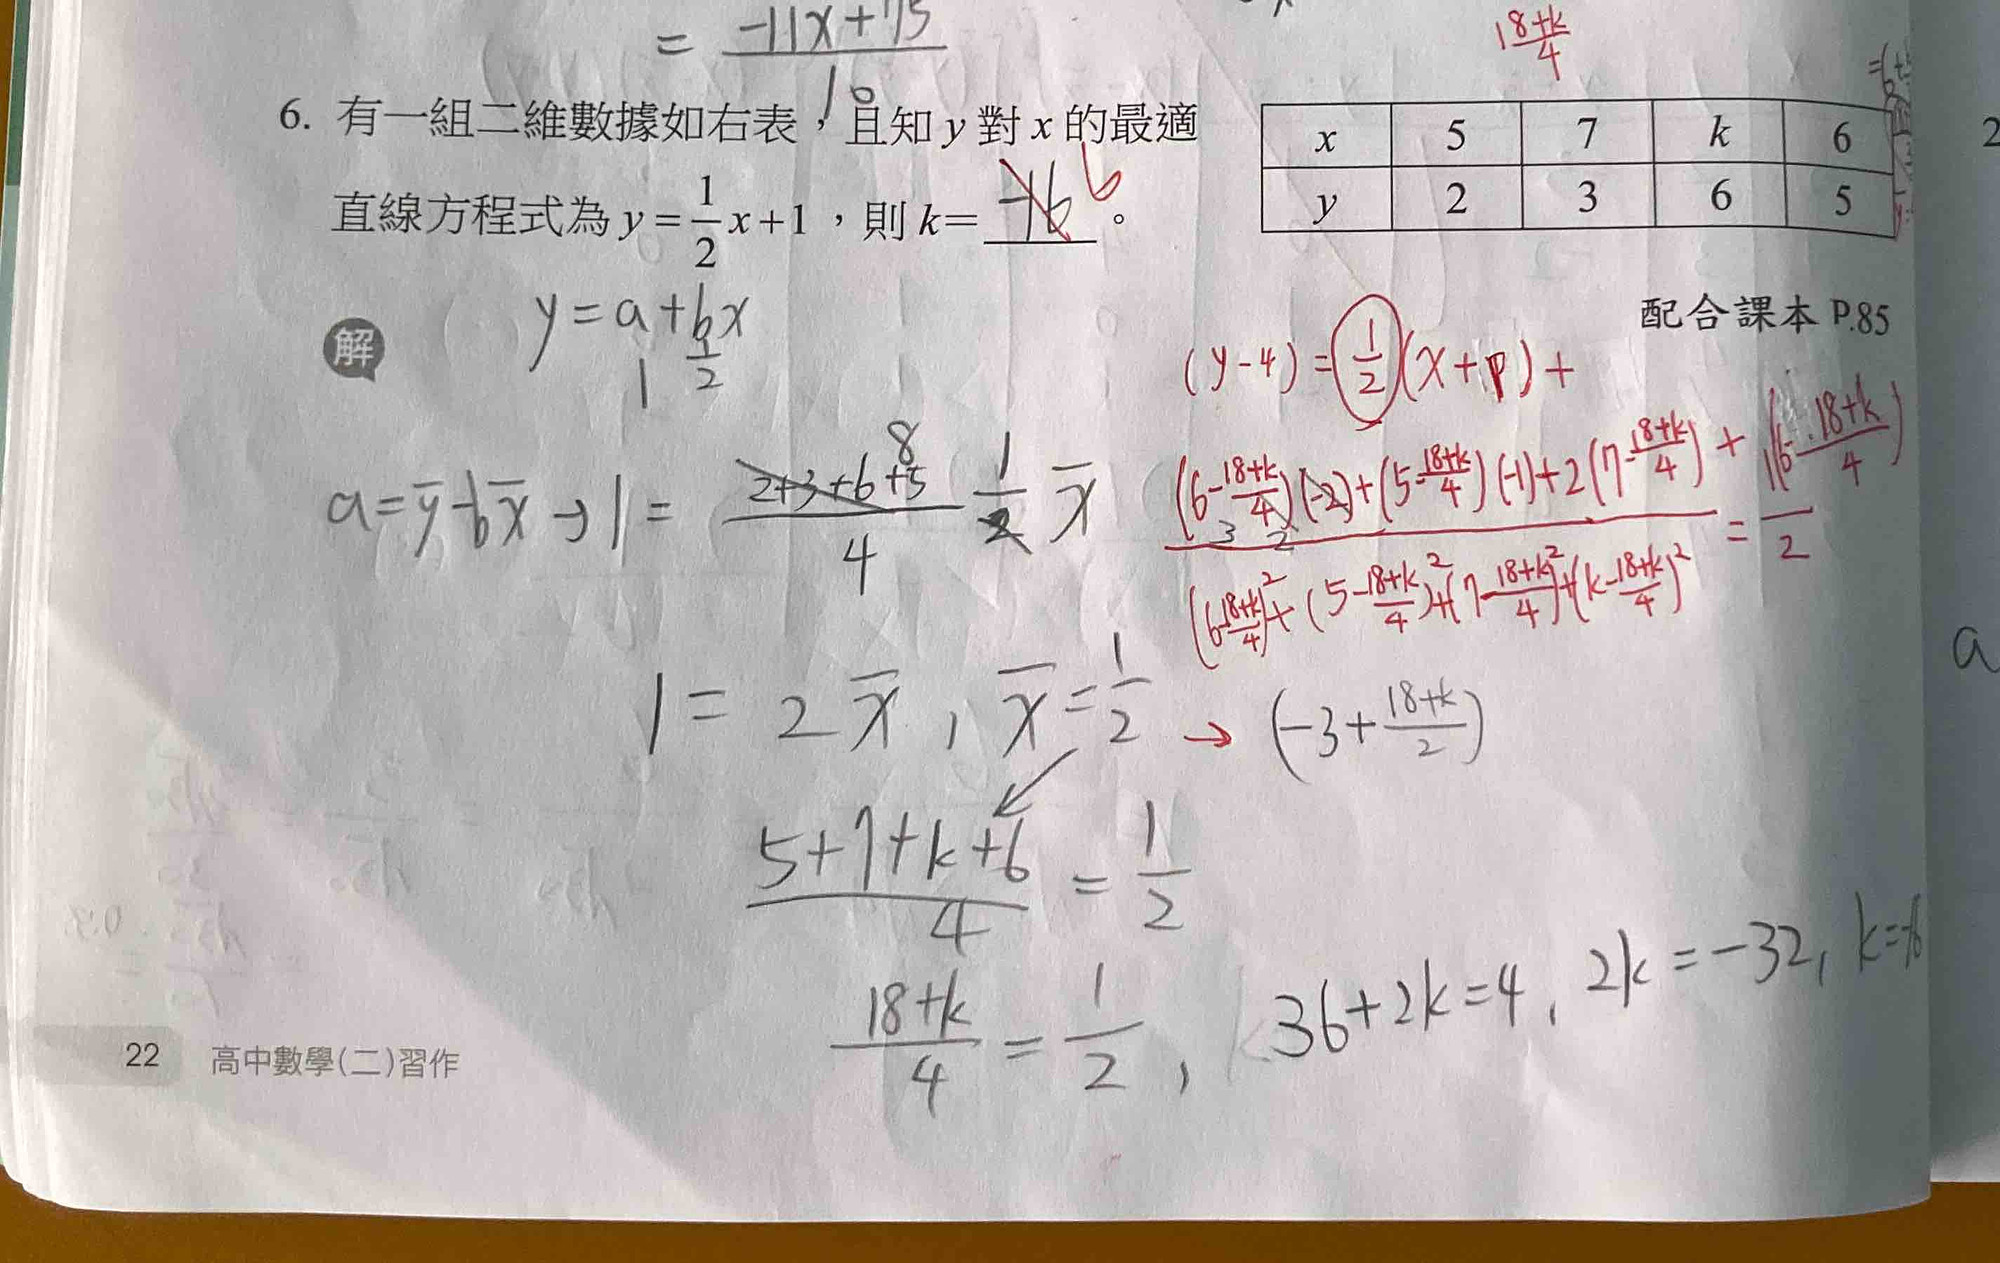 = (-11x+75)/10
18+k/4
6. 有一組二維數據如右表，且知 y 對 x 的最適
直線方程式為 y = 1/2 x + 1，則 k = -16 6 。
x 5 7 k 6
y 2 3 6 5
配合課本 P.85
解
y = a + bx
1 1/2
(y-4) = 1/2 (x+p) +
a = y̅ - bx̅ → 1 = (2+3+6+5)/4 1/2 x̅
8
((6-(18+k)/4)(-2)+(5-(18+k)/4)(-1)+2(7-(18+k)/4)+1(6-(18+k)/4)
(6-(18+k)/4)²+(5-(18+k)/4)²+(7-(18+k)/4)²+(k-(18+k)/4)² = /2
1 = 2x̅, x̅ = 1/2 → (-3+(18+k)/2)
(5+7+k+6)/4 = 1/2
(18+k)/4 = 1/2, 36+2k=4, 2k=-32, k=-16
22 高中數學(二)習作
2
a